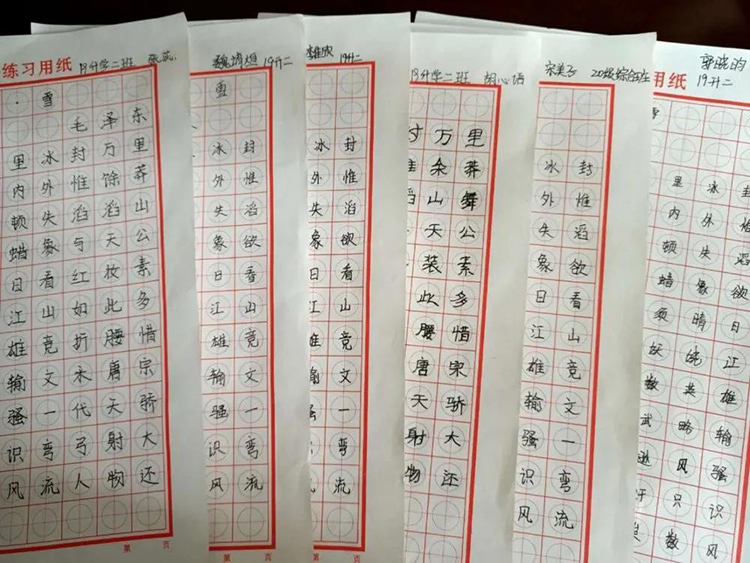 练习用纸
·雪
毛泽东
里冰封万里
内外惟馀莽
顿失滔滔山
蜡象与天公
日看红妆素
江山如此多
雄竞折腰惜
输文木唐宗
骚一代天骄
识弯弓射大
风流人物还
第 页
19升二
雪
冰封
外惟
失滔
象欲
日看
江山
雄竞
输文
骚一
识弯
风流
第 页
19升二
冰封
外惟
失滔
象欲
日看
江山
雄竞
文
一
识弯
风流
第 页
升学二班 胡心语
万里
余莽
山舞
天公
装素
此多
腰惜
唐宋
天骄
射大
物还
宋美 20级综合
冰封
外惟
失滔
象欲
日看
江山
雄竞
输文
骚一
识弯
风流
用纸 19升二
里冰封
内外惟
顿失滔
蜡象欲
须晴日
妖娆江
数英雄
武略输
逊风骚
只识
数风